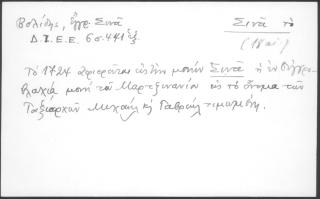 Βολίδης, ἔγγρ. Σινᾶ Σινᾶ τὸ
Δ.Ι.Ε.Ε. 6ος 441 ἑξ. (18 αἰ.)
Τὸ 1724 ἀφιεροῦται εἰς τὴν μονὴν Σινᾶ ἡ ἐν Οὐγγρο-
βλαχίᾳ μονὴ τοῦ Μαρτζινανίου εἰς τὸ ὄνομα τῶν
Ταξιαρχῶν Μιχαὴλ κὴ Γαβριὴλ τιμωμένη.